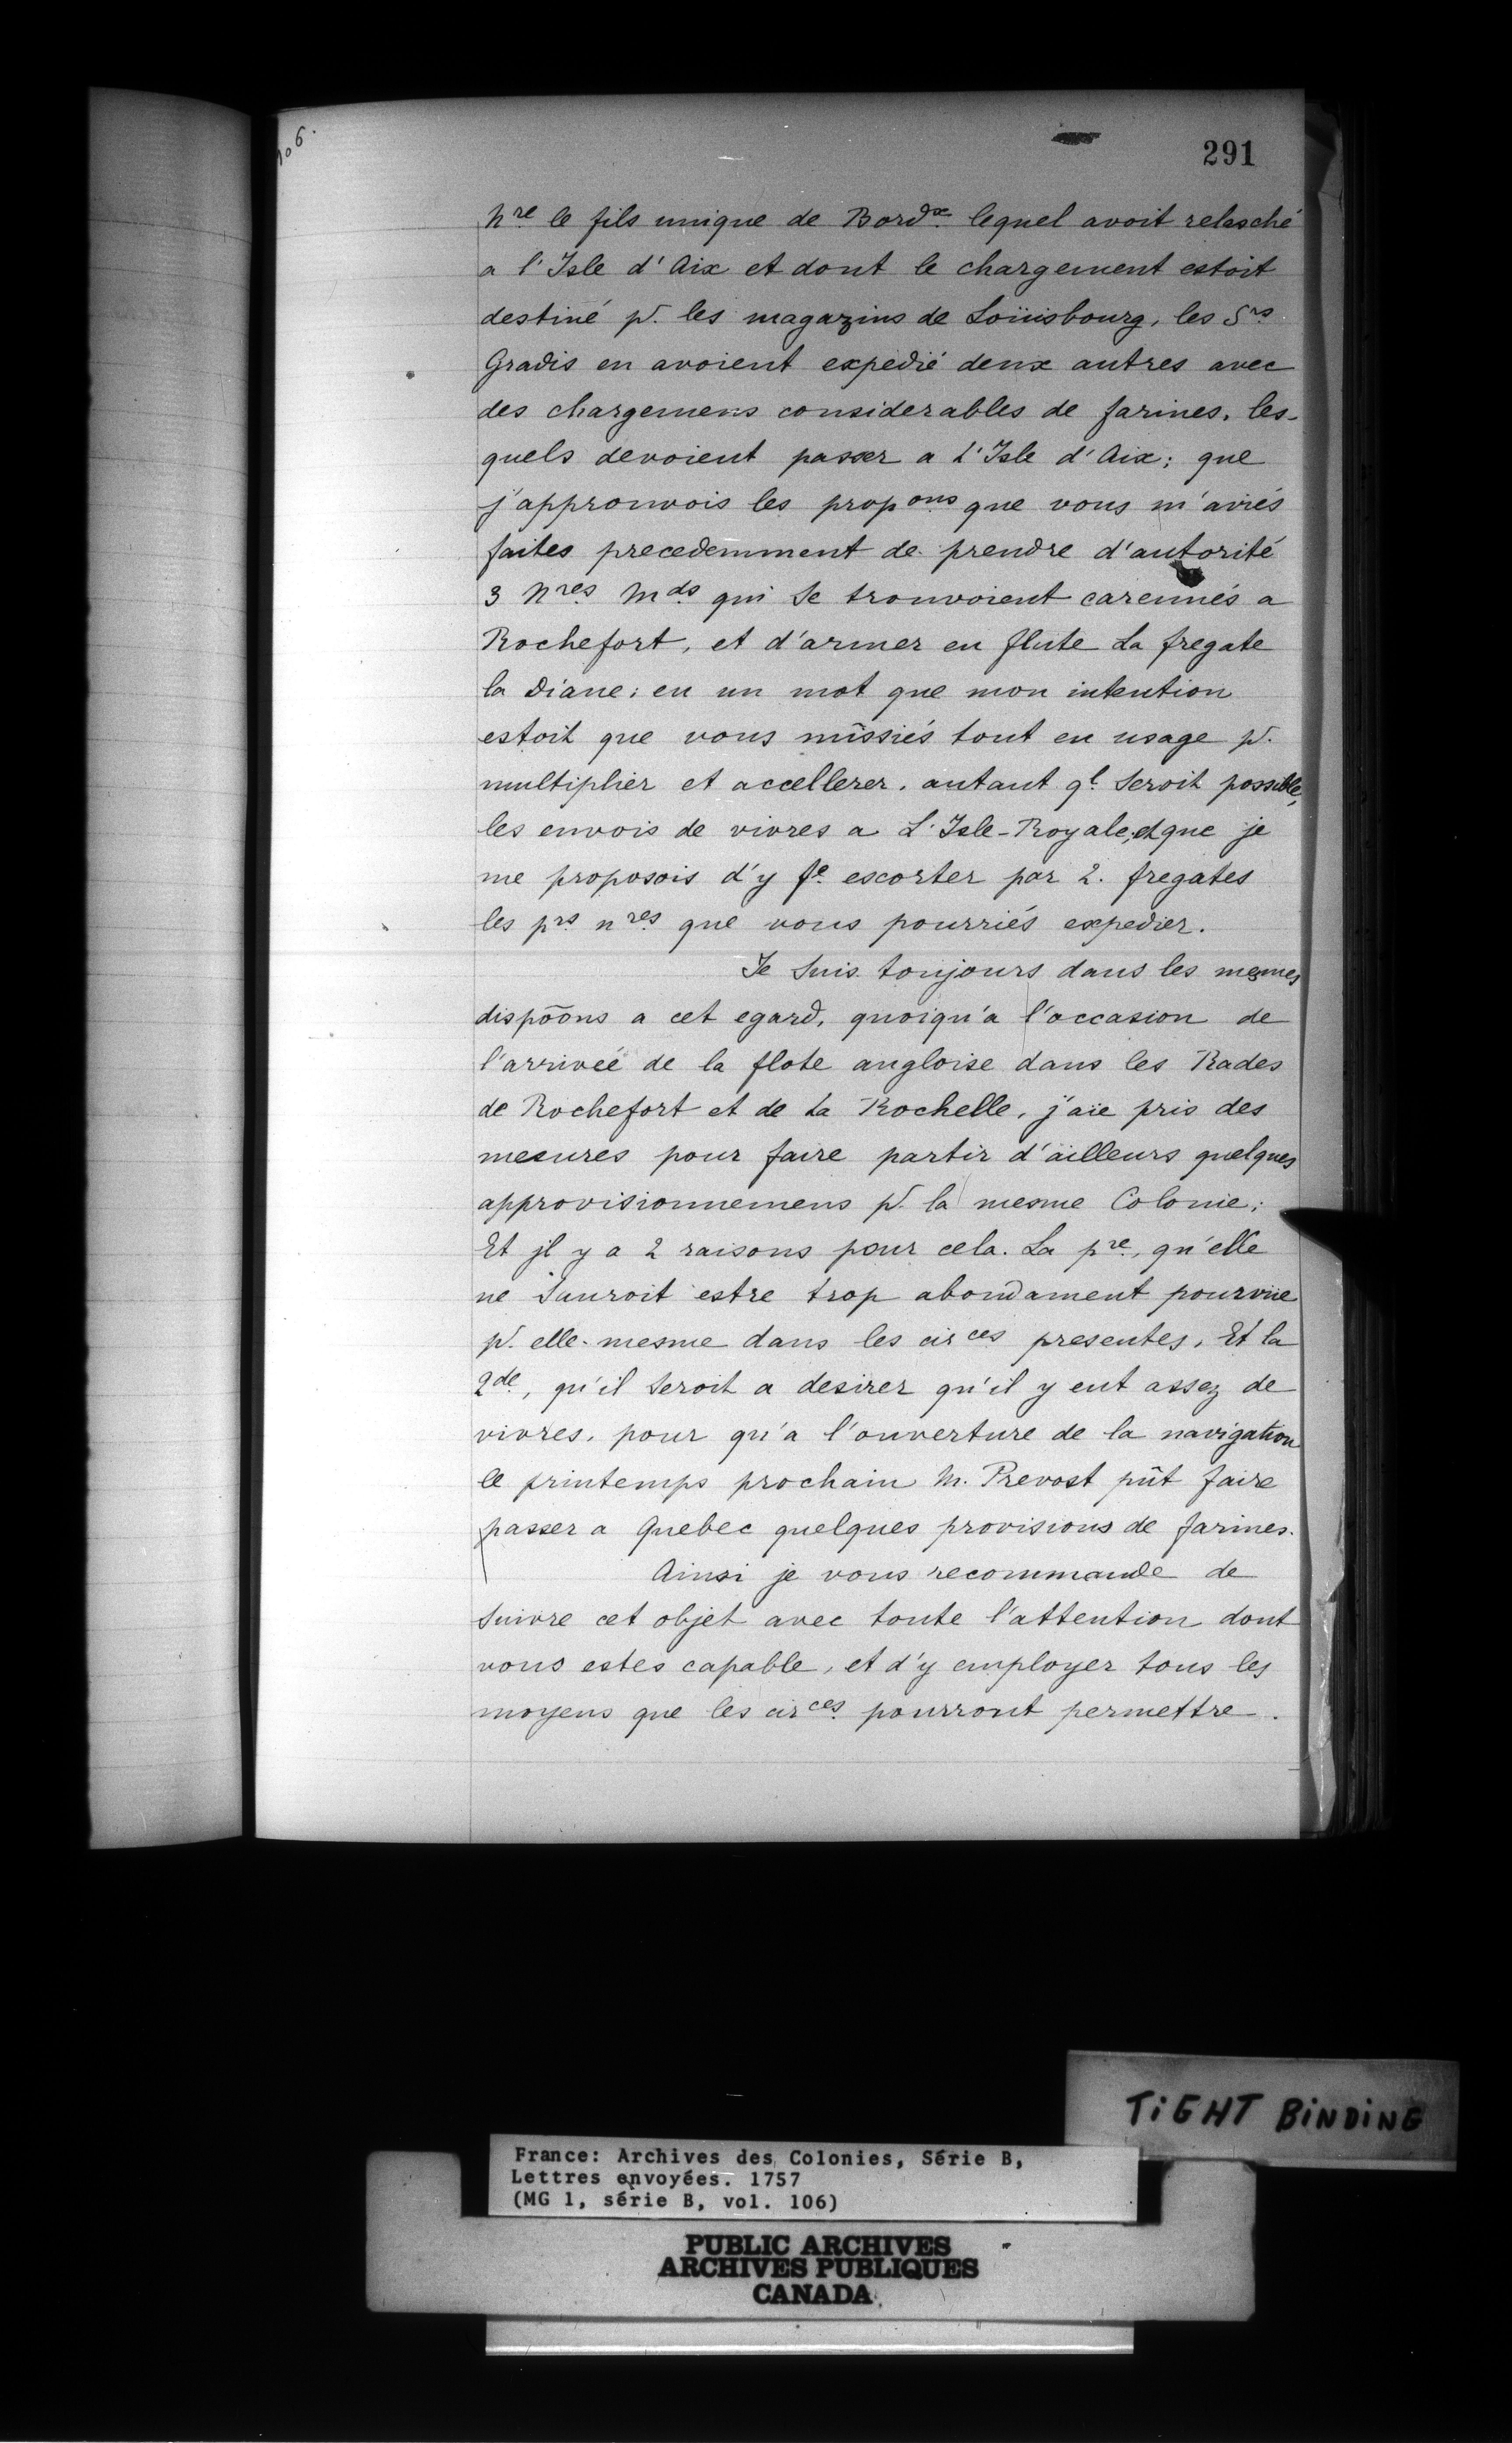 106.
291
Nre le fils unique de Bordx. lequel avoit relasché
a l'Isle d'Aix et dont le chargement estoit
destiné pr. les magazins de Loüisbourg, les Srs
Gradis en avoient expedié deux autres avec
des chargemens considerables de farines, les-
quels devoient passer a L'Isle d'Aix; que
j'approuvois les propons que vous m'aviés
faites precedemment de prendre d'autorité
3 Nres Mds qui se trouvoient carennés a
Rochefort, et d'armer en flute La fregate
la Diane; en un mot que mon intention
estoit que vous missiés tout en usage pr.
multiplier et accellerer, autant ql. seroit possible,
les envois de vivres a L'Isle-Royale; et que je
me proposois d'y fe. escorter par 2. fregates
les prs nres que vous pourriés expedier.
Je suis toujours dans les mesmes
dispõõns a cet egard, quoiqu'a l'occasion de
l'arriveé de la flote angloise dans les Rades
de Rochefort et de La Rochelle, j'aïe pris des
mesures pour faire partir d'äilleurs quelques
approvisionnemens pr. la mesme Colonie;
Et jl y a 2 raisons pour cela. La pre, qu'elle
ne sauroit estre trop abondament pourvüe
pr. elle-mesme dans les circes presentes, Et la
2de, qu'il seroit a desirer qu'il y eut assez de
vivres, pour qu'a l'ouverture de la navigation
le printemps prochain M. Prevost pût faire
passer a Quebec quelques provisions de farines.
Ainsi je vous recommande de
suivre cet objet avec toute l'attention dont
vous estes capable, et d'y employer tous les
moyens que les circes pourront permettre.
TiGHT BiNDiNG
France: Archives des Colonies, Série B,
Lettres envoyées. 1757
(MG 1, série B, vol. 106)
PUBLIC ARCHIVES
ARCHIVES PUBLIQUES
CANADA